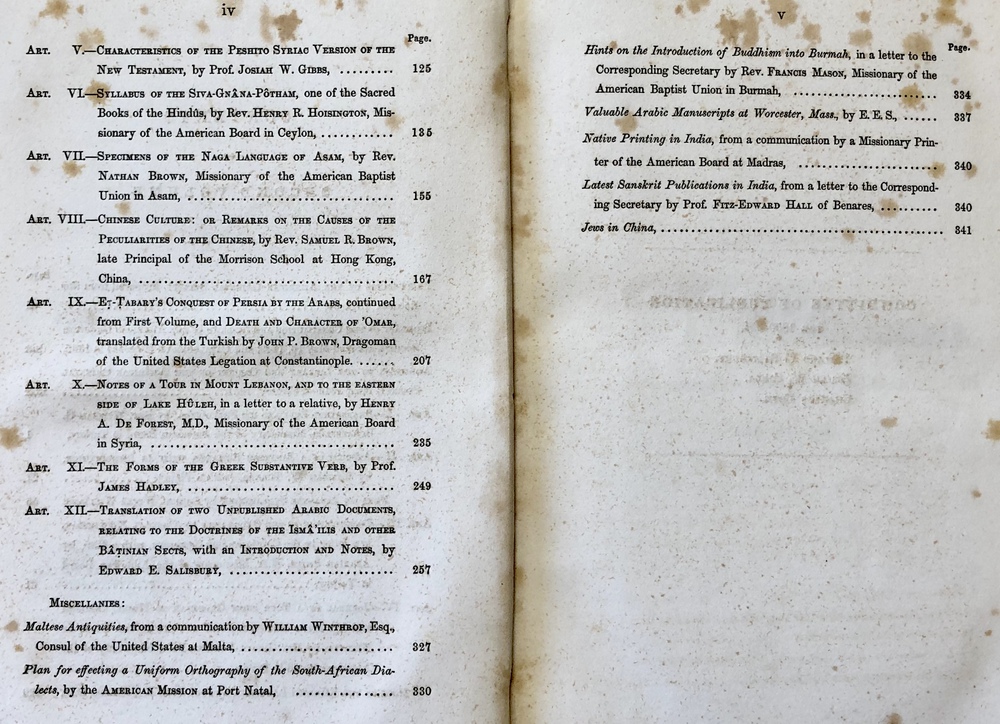 iv
Page.
Art. V.—Characteristics of the Peshito Syriac Version of the
New Testament, by Prof. Josiah W. Gibbs, ......... 125
Art. VI.—Syllabus of the Siva-Gnâna-Pôtham, one of the Sacred
Books of the Hindûs, by Rev. Henry R. Hoisington, Mis-
sionary of the American Board in Ceylon, ............ 135
Art. VII.—Specimens of the Naga Language of Asam, by Rev.
Nathan Brown, Missionary of the American Baptist
Union in Asam, ................................. 155
Art. VIII.—Chinese Culture: or Remarks on the Causes of the
Peculiarities of the Chinese, by Rev. Samuel R. Brown,
late Principal of the Morrison School at Hong Kong,
China, ......................................... 167
Art. IX.—Eṭ-Tabary's Conquest of Persia by the Arabs, continued
from First Volume, and Death and Character of 'Omar,
translated from the Turkish by John P. Brown, Dragoman
of the United States Legation at Constantinople. ...... 207
Art. X.—Notes of a Tour in Mount Lebanon, and to the eastern
side of Lake Hûleh, in a letter to a relative, by Henry
A. De Forest, M.D., Missionary of the American Board
in Syria, ....................................... 235
Art. XI.—The Forms of the Greek Substantive Verb, by Prof.
James Hadley, ................................. 249
Art. XII.—Translation of two Unpublished Arabic Documents,
relating to the Doctrines of the Ismâ'ilis and other
Bâṭinian Sects, with an Introduction and Notes, by
Edward E. Salisbury, ........................... 257
Miscellanies:
Maltese Antiquities, from a communication by William Winthrop, Esq.,
Consul of the United States at Malta, ......................... 327
Plan for effecting a Uniform Orthography of the South-African Dia-
lects, by the American Mission at Port Natal, ................ 330
v
Page.
Hints on the Introduction of Buddhism into Burmah, in a letter to the
Corresponding Secretary by Rev. Francis Mason, Missionary of the
American Baptist Union in Burmah, ........................ 334
Valuable Arabic Manuscripts at Worcester, Mass., by E. E. S., ...... 337
Native Printing in India, from a communication by a Missionary Prin-
ter of the American Board at Madras, ....................... 340
Latest Sanskrit Publications in India, from a letter to the Correspond-
ing Secretary by Prof. Fitz-Edward Hall of Benares, .......... 340
Jews in China, ................................................ 341